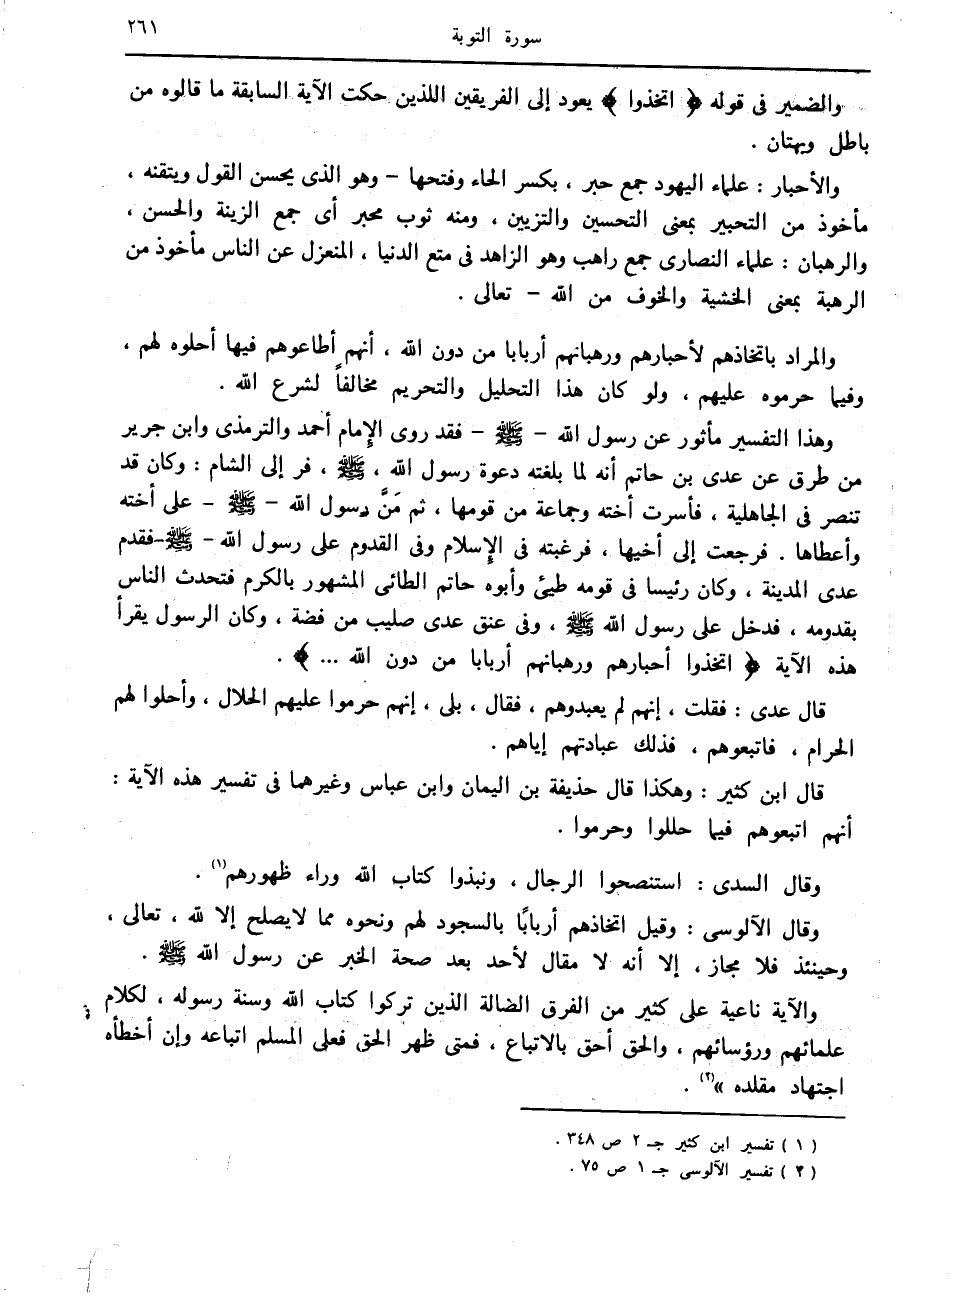 سورة التوبة ٢٦١
والضمير فى قوله ﴿ اتخذوا ﴾ يعود إلى الفريقين اللذين حكت الآية السابقة ما قالوه من
باطل وبهتان .
والأحبار : علماء اليهود جمع حبر ، بكسر الحاء وفتحها – وهو الذى يحسن القول ويتقنه ،
مأخوذ من التحبير بمعنى التحسين والتزيين ، ومنه ثوب محبر أى جمع الزينة والحسن ،
والرهبان : علماء النصارى جمع راهب وهو الزاهد فى متع الدنيا ، المنعزل عن الناس مأخوذ من
الرهبة بمعنى الخشية والخوف من الله – تعالى .
والمراد باتخاذهم لأحبارهم ورهبانهم أربابا من دون الله ، أنهم أطاعوهم فيها أحلوه لهم ،
وفيما حرموه عليهم ، ولو كان هذا التحليل والتحريم مخالفاً لشرع الله .
وهذا التفسير مأثور عن رسول الله – ﷺ – فقد روى الإمام أحمد والترمذى وابن جرير
من طرق عن عدى بن حاتم أنه لما بلغته دعوة رسول الله ، ﷺ ، فر إلى الشام : وكان قد
تنصر فى الجاهلية ، فأسرت أخته وجماعة من قومها ، ثم مَنَّ رسول الله – ﷺ – على أخته
وأعطاها . فرجعت إلى أخيها ، فرغبته فى الإسلام وفى القدوم على رسول الله – ﷺ – فقدم
عدى المدينة ، وكان رئيسا فى قومه طيئ وأبوه حاتم الطائى المشهور بالكرم فتحدث الناس
بقدومه ، فدخل على رسول الله ﷺ ، وفى عنق عدى صليب من فضة ، وكان الرسول يقرأ
هذه الآية ﴿ اتخذوا أحبارهم ورهبانهم أربابا من دون الله ... ﴾ .
قال عدى : فقلت ، إنهم لم يعبدوهم ، فقال ، بلى ، إنهم حرموا عليهم الحلال ، وأحلوا لهم
الحرام ، فاتبعوهم ، فذلك عبادتهم إياهم .
قال ابن كثير : وهكذا قال حذيفة بن اليمان وابن عباس وغيرهما فى تفسير هذه الآية :
أنهم اتبعوهم فيما حللوا وحرموا .
وقال السدى : استنصحوا الرجال ، ونبذوا كتاب الله وراء ظهورهم(١) .
وقال الآلوسى : وقيل اتخاذهم أربابًا بالسجود لهم ونحوه مما لايصلح إلا لله ، تعالى ،
وحينئذ فلا مجاز ، إلا أنه لا مقال لأحد بعد صحة الخبر عن رسول الله ﷺ .
والآية ناعية على كثير من الفرق الضالة الذين تركوا كتاب الله وسنة رسوله ، لكلام
علمائهم ورؤسائهم ، والحق أحق بالاتباع ، فمتى ظهر الحق فعلى المسلم اتباعه وإن أخطأه
اجتهاد مقلده »(٢) .
( ١ ) تفسير ابن كثير جـ ٢ ص ٣٤٨ .
( ٢ ) تفسير الآلوسى جـ ١ ص ٧٥ .